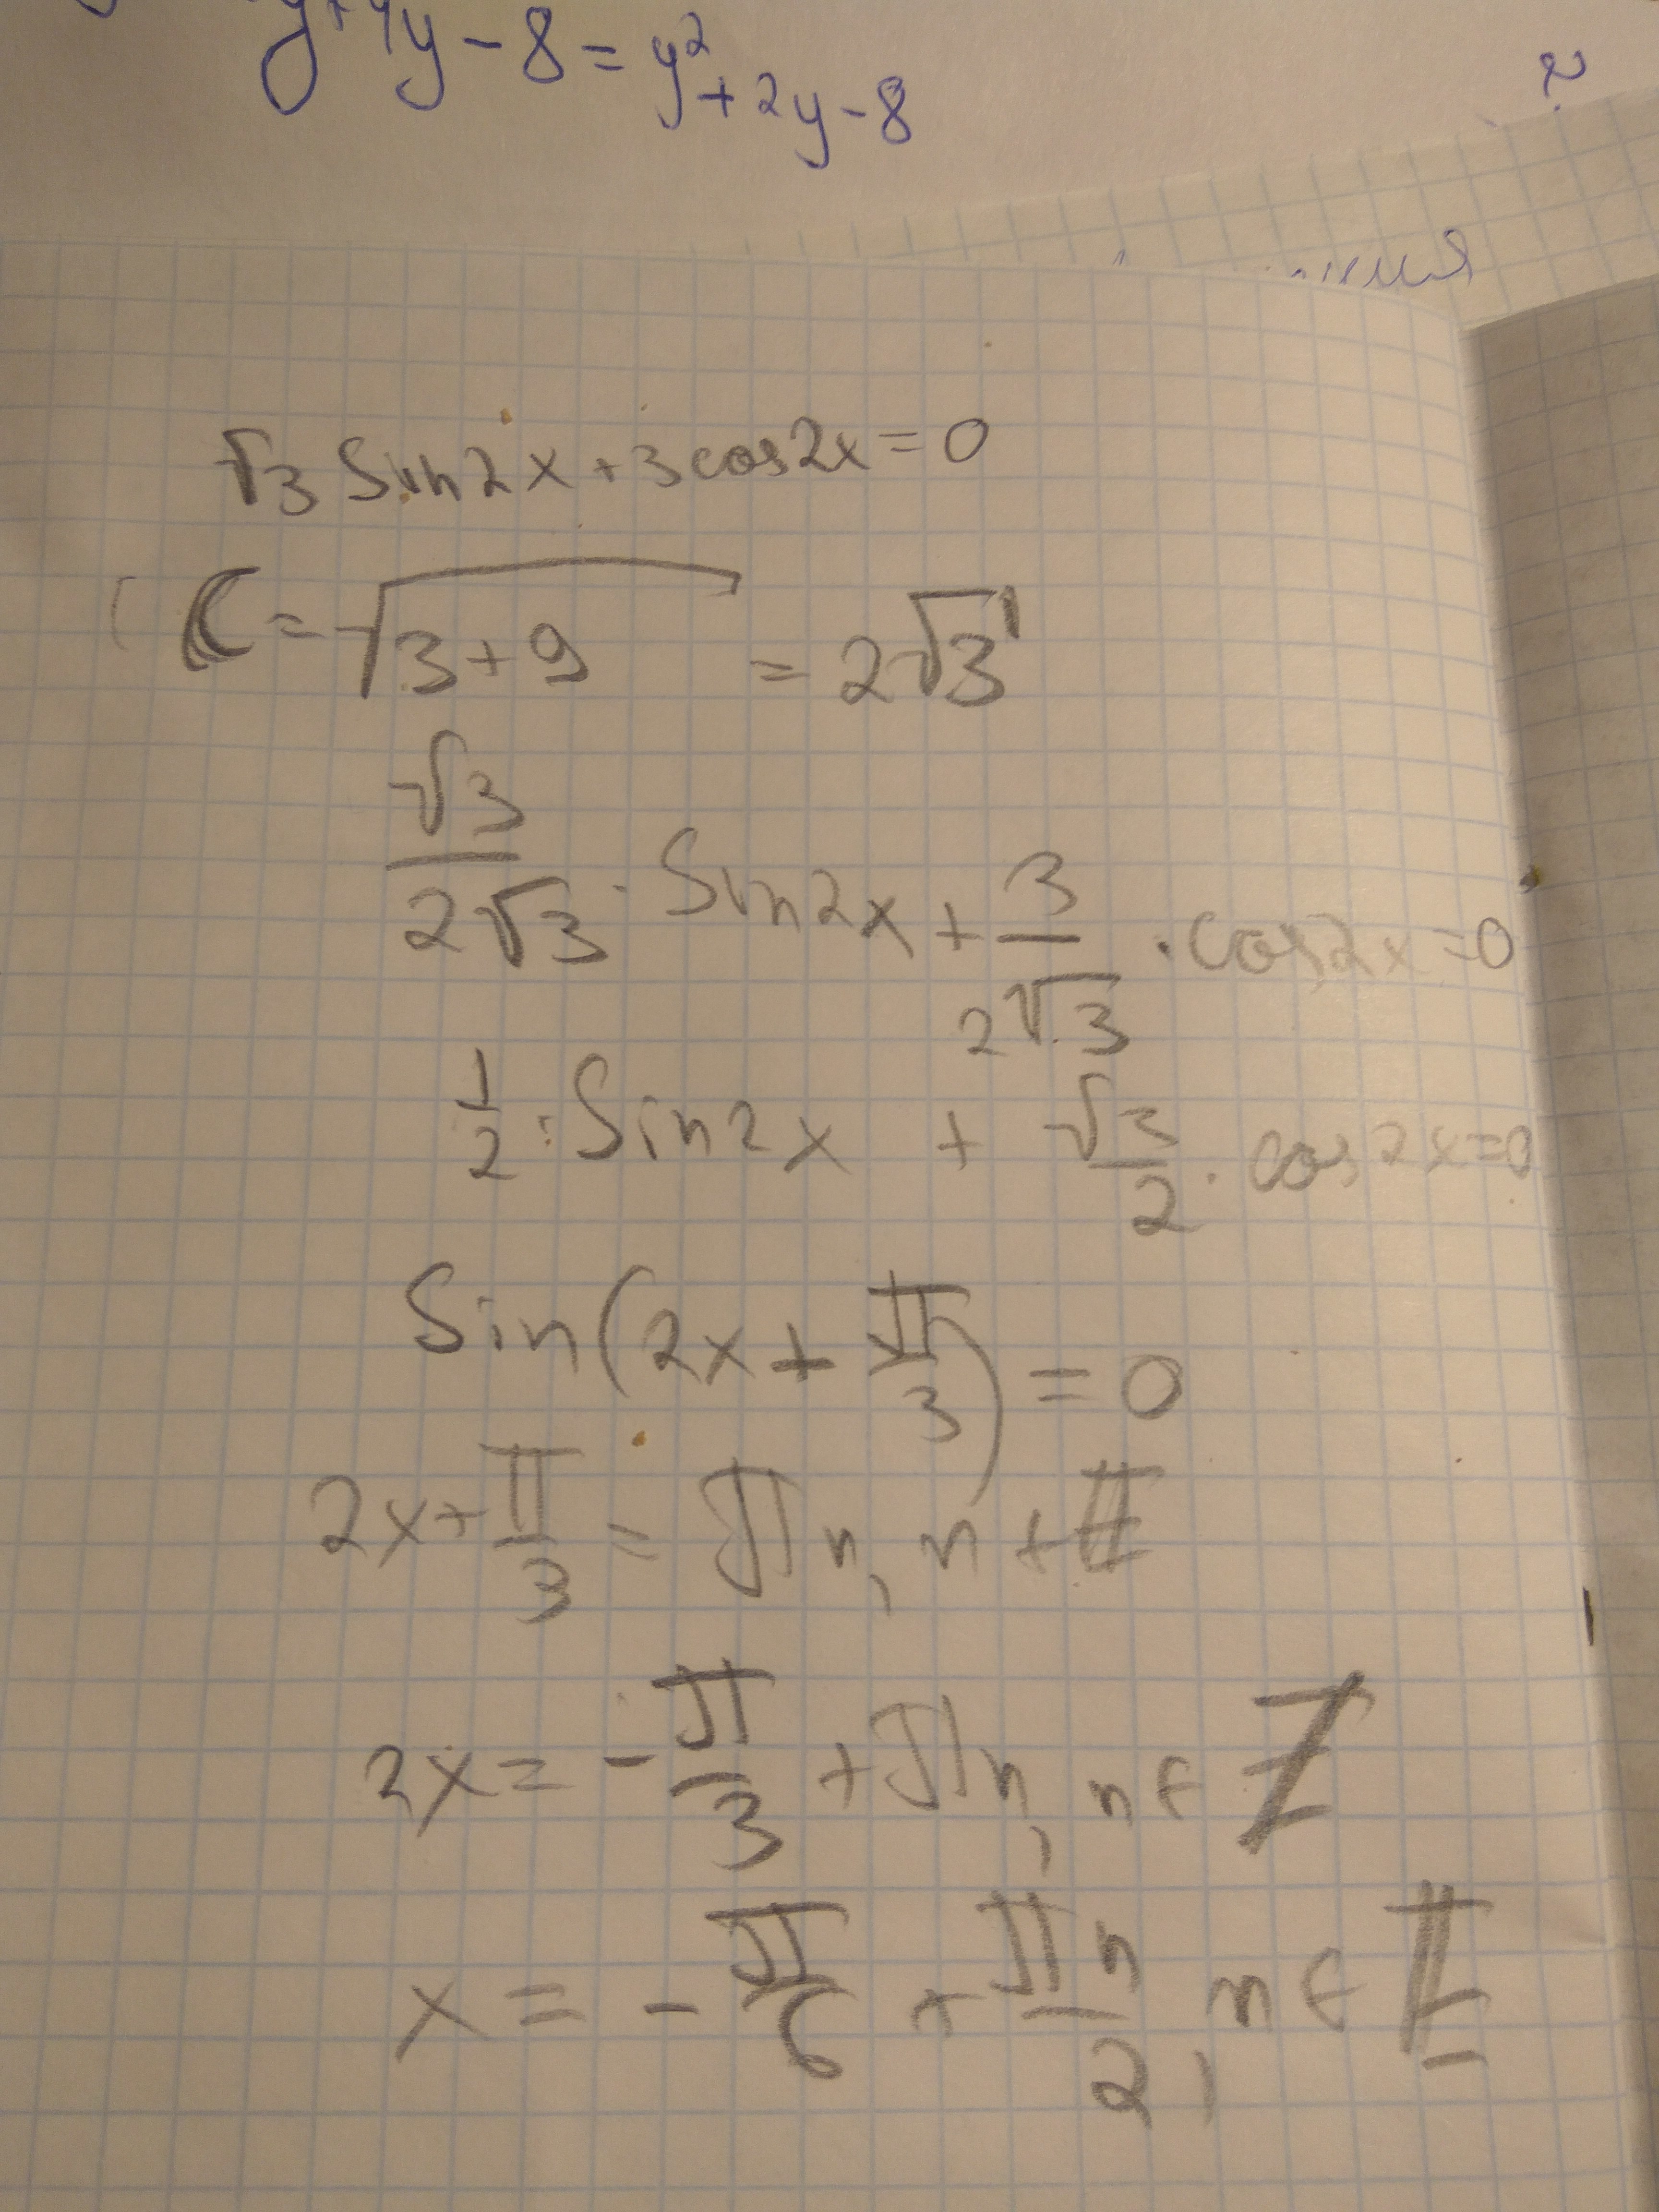 y+4y-8=y²+2y-8
√3 sin2x+3cos2x=0
C=√3+9 = 2√3
√3/2√3 · sin2x + 3/2√3 · cos2x=0
1/2 · sin2x + √3/2 · cos2x=0
sin(2x+π/3)=0
2x+π/3=πn, n∈Z
2x=-π/3+πn, n∈Z
x=-π/6+πn/2, n∈Z